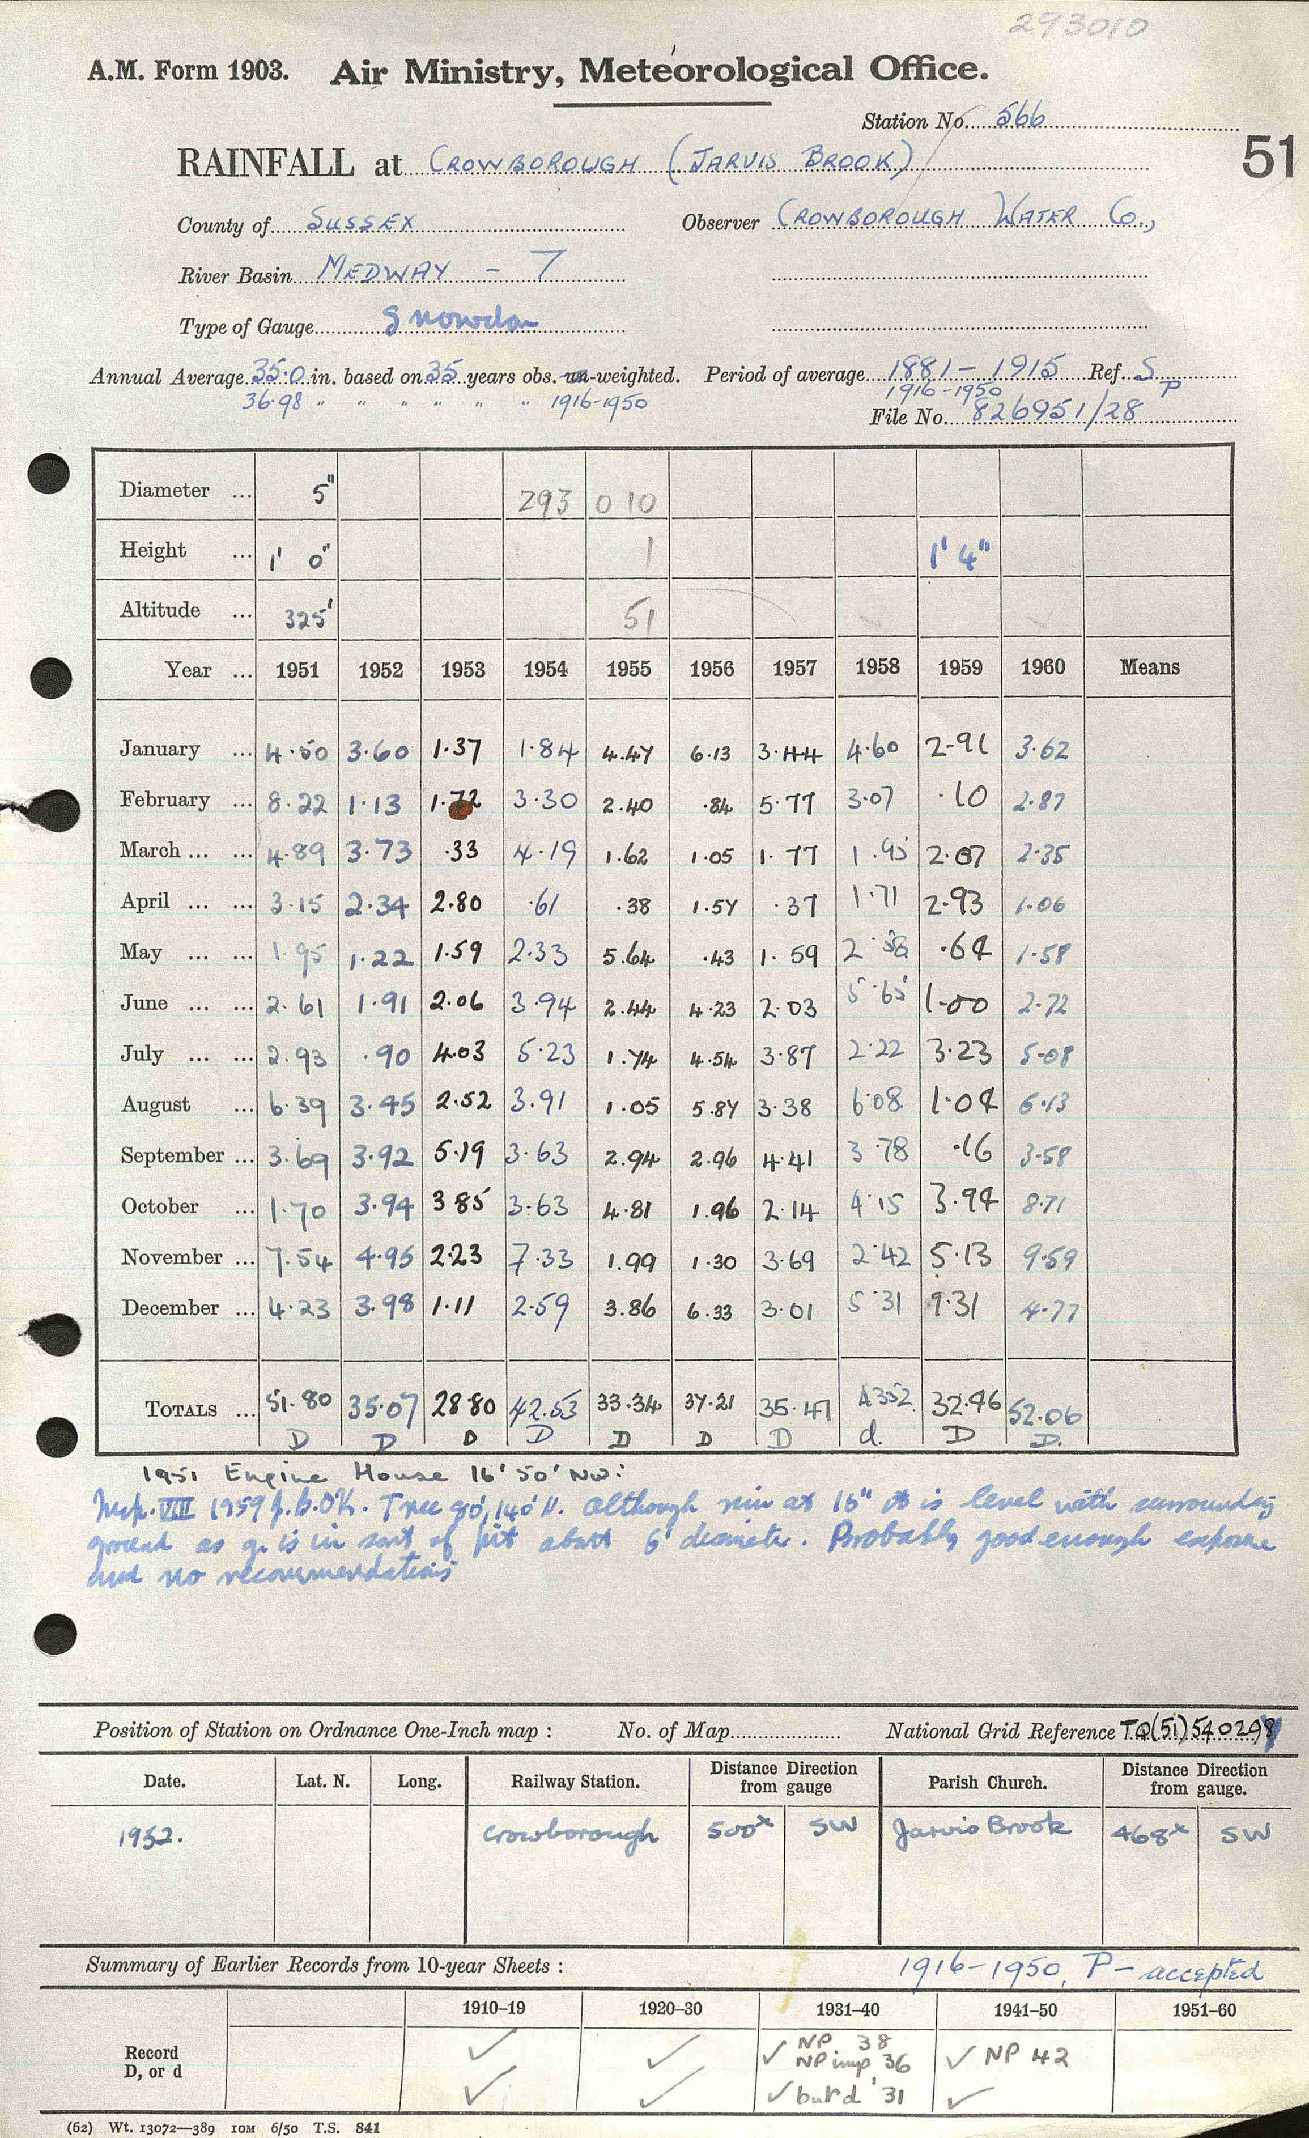 293010
A.M. Form 1903. Air Ministry, Meteorological Office.
Station No. 566
51
RAINFALL at CROWBOROUGH (JARVIS BROOK)
County of SUSSEX Observer CROWBOROUGH WATER Co.,
River Basin MEDWAY - 7
Type of Gauge Snowdon
Annual Average 35.0 in. based on 35 years obs. un-weighted. Period of average 1881 - 1915 Ref. S
36.98 " " " " " " 1916-1950 1916-1950 P
File No. 826951/28
Diameter ... 5" 293 010
Height ... 1' 0" 1 1' 4"
Altitude ... 325' 51
Year ... 1951 1952 1953 1954 1955 1956 1957 1958 1959 1960 Means
January ... 4.50 3.60 1.37 1.84 4.47 6.13 3.44 4.60 2.91 3.62
February ... 8.22 1.13 1.72 3.30 2.40 .84 5.77 3.07 .10 2.87
March ... ... 4.89 3.73 .33 4.19 1.62 1.05 1.77 1.95 2.07 2.35
April ... ... 3.15 2.34 2.80 .61 .38 1.57 .37 1.71 2.93 1.06
May ... ... 1.95 1.22 1.59 2.33 5.64 .43 1.59 2.58 .64 1.58
June ... ... 2.61 1.91 2.06 3.94 2.44 4.23 2.03 5.65 1.00 2.72
July ... ... 2.93 .90 4.03 5.23 1.74 4.54 3.87 2.22 3.23 5.08
August ... 6.39 3.45 2.52 3.91 1.05 5.87 3.38 6.08 1.04 6.13
September ... 3.69 3.92 5.19 3.63 2.94 2.96 4.41 3.78 .16 3.58
October ... 1.70 3.94 3 85 3.63 4.81 1.96 2.14 4.15 3.94 8.71
November ... 7.54 4.95 2.23 7.33 1.99 1.30 3.69 2.42 5.13 9.59
December ... 4.23 3.98 1.11 2.59 3.86 6.33 3.01 5.31 9.31 4.77
TOTALS ... 51.80 35.07 28 80 42.53 33.34 37.21 35.47 4352 32.46 52.06
D D D D D D D d. D D.
1951 Engine House 16' 50' NW:
Insp. VIII 1959 OK. Tree 90', 140' N. although rim at 16" it is level with surrounding
ground as g. is in sort of pit about 6' diameter. Probably good enough exposure
and no recommendations
Position of Station on Ordnance One-Inch map : No. of Map National Grid Reference TQ(51)540298
Date. Lat. N. Long. Railway Station. Distance Direction from gauge Parish Church. Distance Direction from gauge.
1952. Crowborough 500x SW Jarvis Brook 468x SW
Summary of Earlier Records from 10-year Sheets : 1916-1950, P - accepted
1910-19 1920-30 1931-40 1941-50 1951-60
Record D, or d ✓ ✓ ✓ NP 38 NP imp 36 ✓ NP 42
✓ ✓ ✓ but d '31 ✓
(62) Wt. 13072—389 10M 6/50 T.S. 841